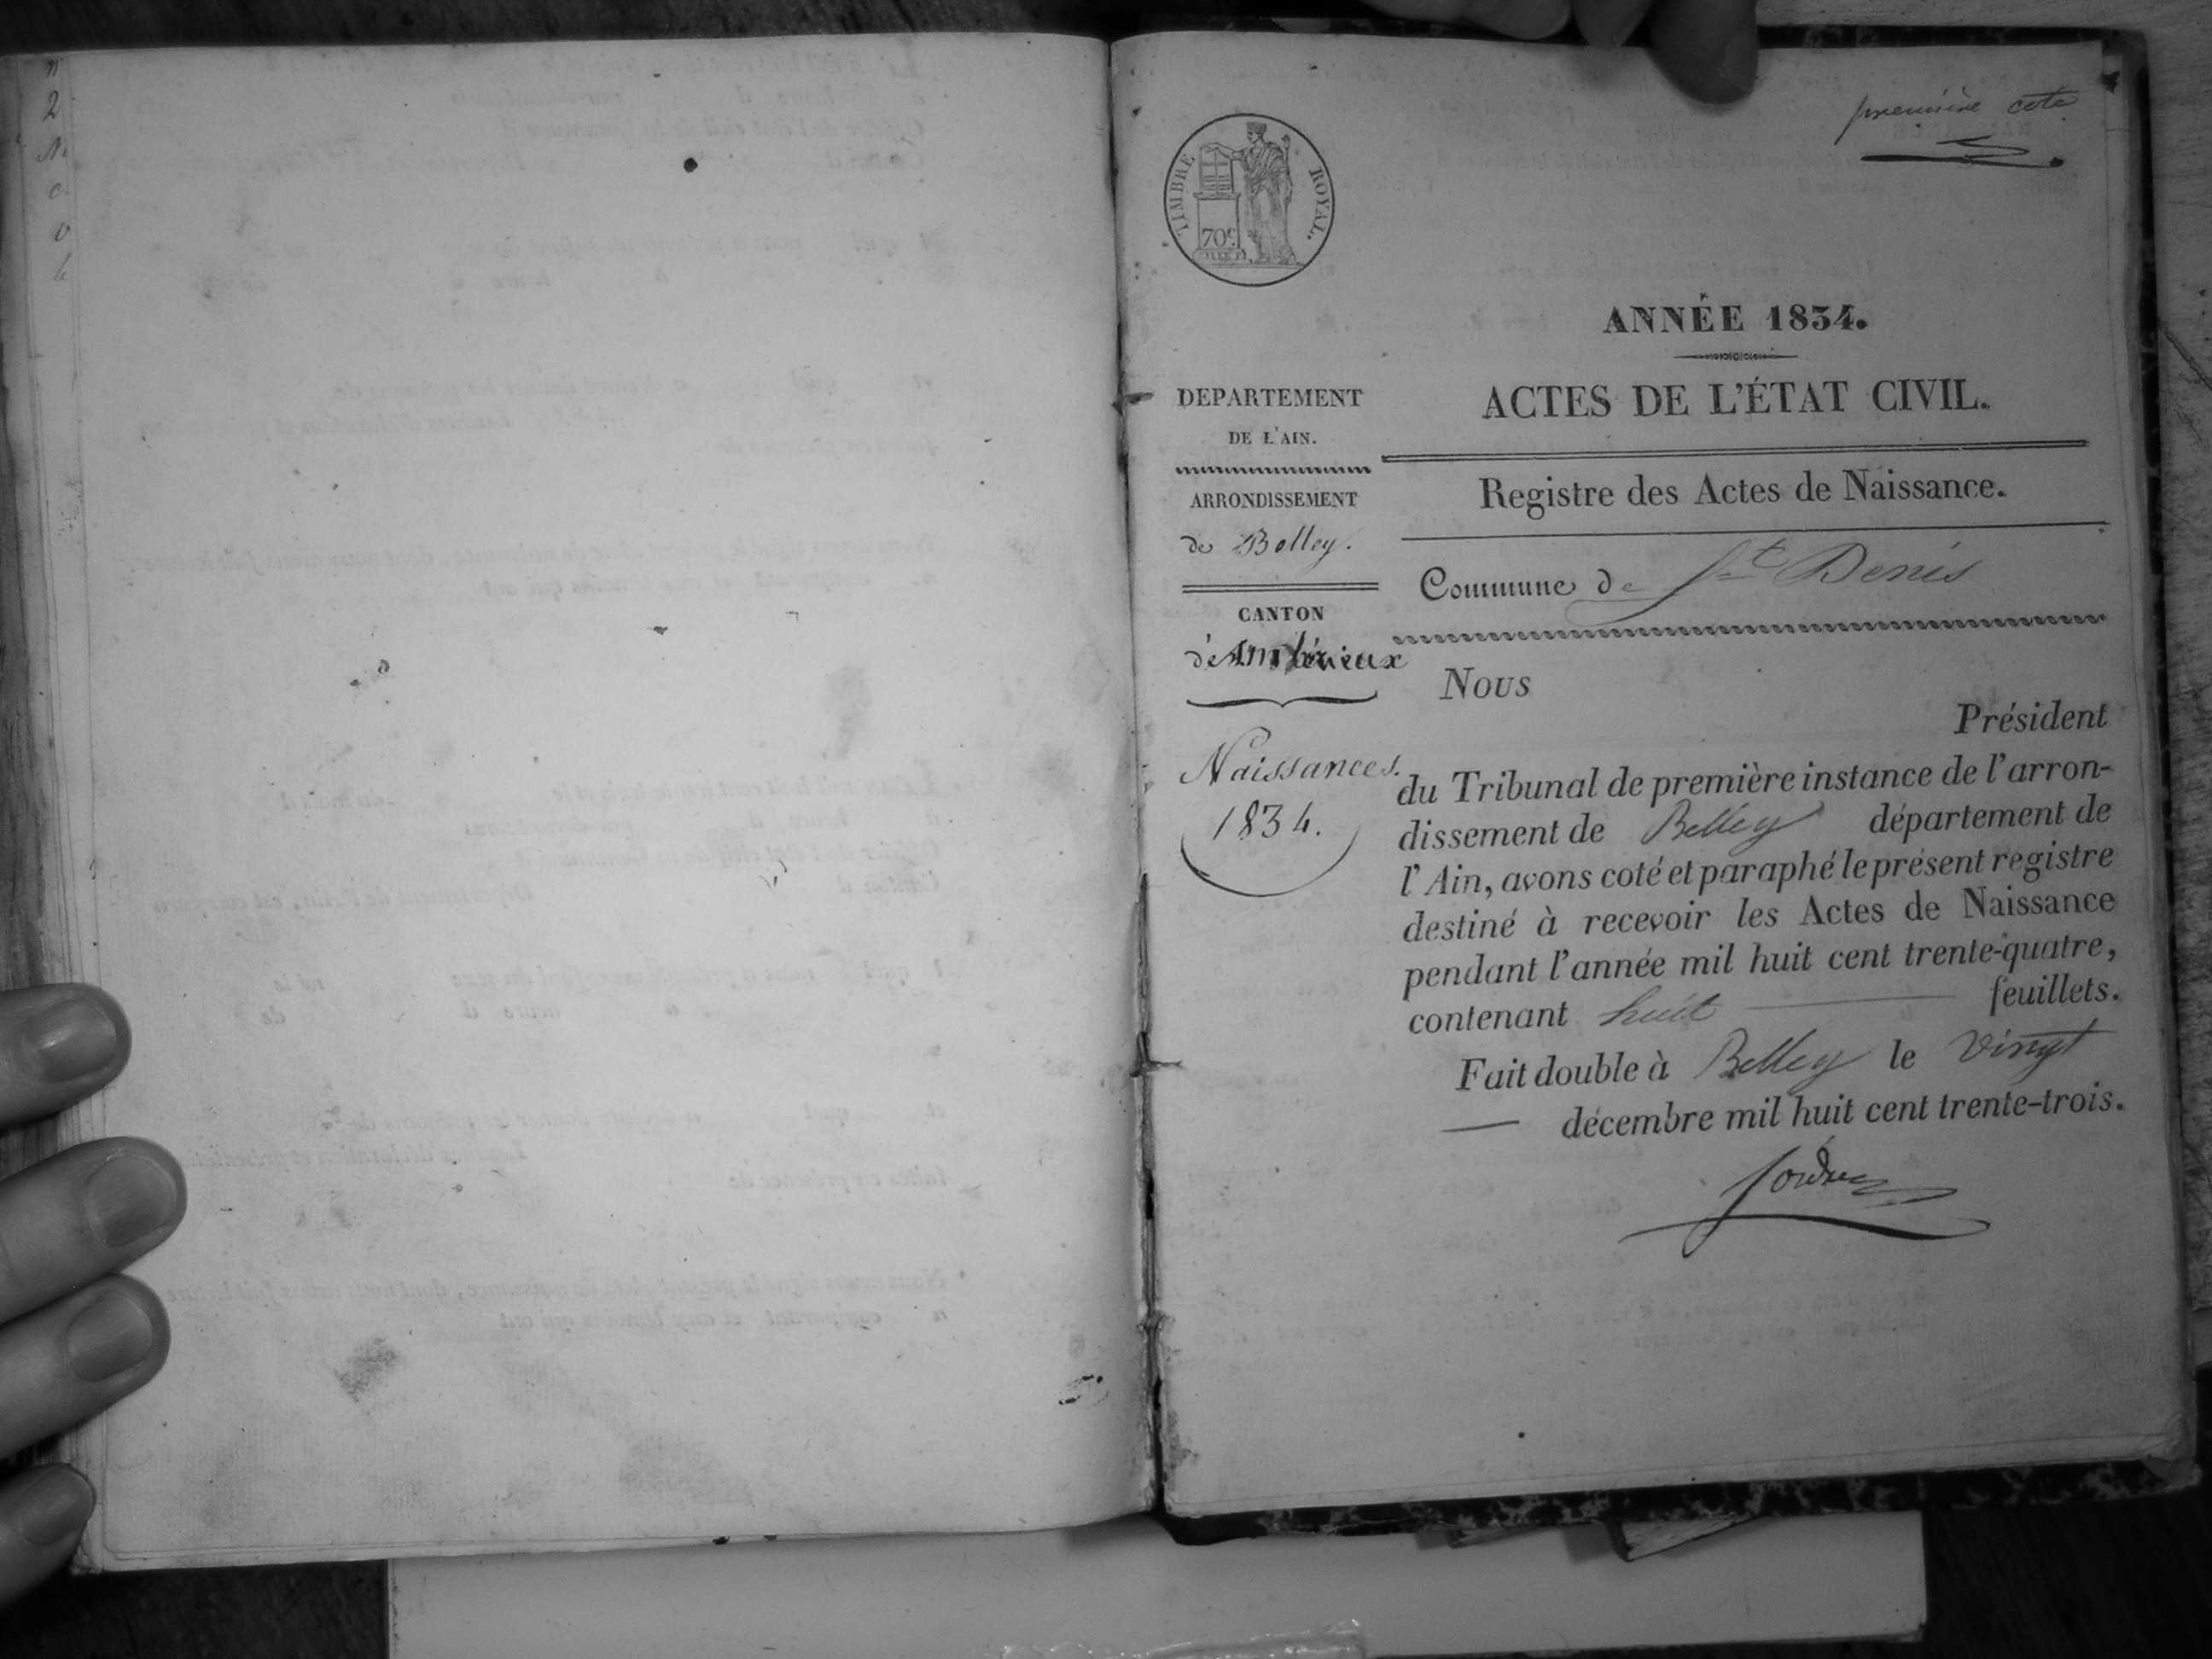 première cote
TIMBRE ROYAL.
70c
ANNÉE 1834.
DEPARTEMENT
DE L'AIN.
ARRONDISSEMENT
de Belley.
CANTON
d'Ambérieux
Naissances.
1834.
ACTES DE L'ÉTAT CIVIL.
Registre des Actes de Naissance.
Commune de St Denis
Nous
Président
du Tribunal de première instance de l'arron-
dissement de Belley département de
l'Ain, avons coté et paraphé le présent registre
destiné à recevoir les Actes de Naissance
pendant l'année mil huit cent trente-quatre,
contenant huit feuillets.
Fait double à Belley le Vingt
décembre mil huit cent trente-trois.